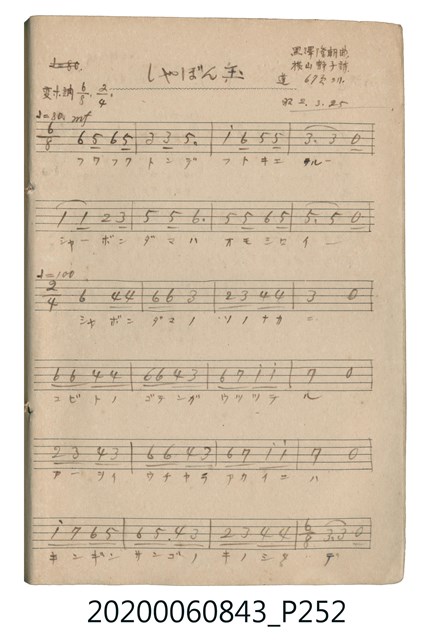 ♩=80.
しゃぼん玉
黒澤隆朝曲
横山静子詩
変ホ調 6/8. 2/4.
昭 2. 3. 25
♩=80. mf
6/8 6 5 6 5 | 3 3 5. | i 6 5 5 | 3. 3 0
フワフワ トンダ フトキニ ルー
1 1 2 3 | 5 5 6. | 5 5 6 5 | 5. 5 0
シャーボン ダマハ オモシロイー
♩=100
2/4 6 44 | 66 3 | 23 44 | 3 0
シャボン ダマノ ソノナカニ
66 44 | 66 43 | 67 ii | 7 0
コビトノ ゴテンガ ウツツテル
23 43 | 66 43 | 67 ii | 7 0
アーツイ ウチャヤ アカイニハ
i7 65 | 65.43 | 23 44 | 6/8 3.30
キンギン サンゴノ キノミタ
20200060843_P252